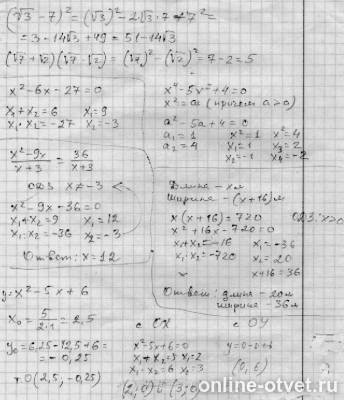 (√3 − 7)² = (√3)² − 2√3·7 + 7² =
= 3 − 14√3 + 49 = 51 − 14√3
(√7 + √2)(√7 − √2) = (√7)² − (√2)² = 7 − 2 = 5
x² − 6x − 27 = 0
x₁ + x₂ = 6 x₁ = 9
x₁ · x₂ = −27 x₂ = −3
x⁴ − 5x² + 4 = 0
x² = a (причем a > 0)
a² − 5a + 4 = 0
a₁ = 1 x² = 1 x² = 4
a₂ = 4 x₁ = 1 x₃ = 2
x₂ = −1 x₄ = −2
x² − 9x / x + 3 = 36 / x + 3
ОДЗ x ≠ −3
x² − 9x − 36 = 0
x₁ + x₂ = 9 x₁ = 12
x₁ · x₂ = −36 x₂ = −3
Ответ: x = 12
Длина − x м
Ширина − (x + 16) м
x(x + 16) = 720 ОДЗ: x > 0
x² + 16x − 720 = 0
x₁ + x₂ = −16 x₁ = −36
x₁ · x₂ = −720 x₂ = 20
x + 16 = 36
Ответ: длина − 20м
ширина − 36м
y = x² − 5x + 6
x₀ = 5 / 2·1 = 2,5
y₀ = 6,25 − 12,5 + 6 =
= − 0,25
т. О (2,5; −0,25)
с OX
x² − 5x + 6 = 0
x₁ + x₂ = 5 x₁ = 2
x₁ · x₂ = 6 x₂ = 3
(2; 0) (3; 0)
с OY
y = 0 − 0 + 6
(0; 6)
online-otvet.ru